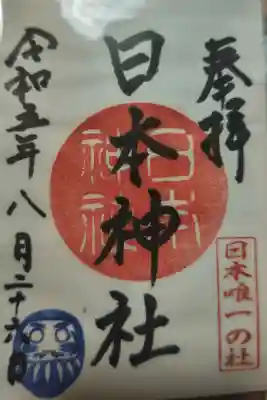 奉拝
日本神社
日本神社
日本唯一の社
令和五年八月二十六日